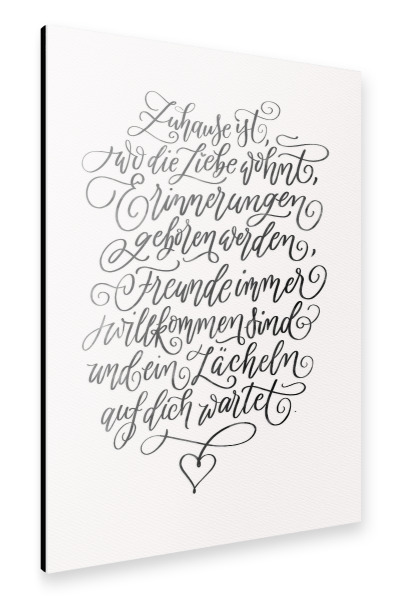 Zuhause ist,
wo die Liebe wohnt,
Erinnerungen
geboren werden,
Freunde immer
willkommen sind
und ein Lächeln
auf dich wartet.